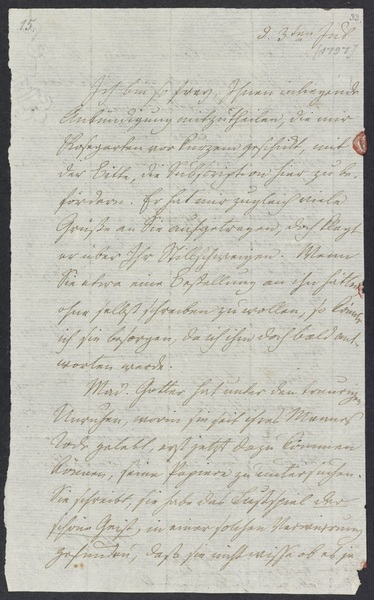 15.
33.
d. 3ten Jul
[1797]
Ich bin so frey, Ihnen inliegende
Ankündigung mitzutheilen, die mir
Kosegarten vor Kurzem geschickt, mit
der Bitte, die Subscription hier zu be-
fördern. Er hat mir zugleich viele
Grüße an Sie aufgetragen, doch klagt
er über Ihr Stillschweigen. Wenn
Sie etwa eine Bestellung an ihn hätten
ohne selbst schreiben zu wollen, so könnte
ich sie besorgen, da ich ihm doch bald ant-
worten werde.
Mad. Gotter hat unter den traurigen
Unruhen, worin sie seit ihres Mannes
Tode gelebt, erst jetzt dazu kommen
können, seine Papiere zu untersuchen.
Sie schreibt, sie habe das Lustspiel der
schöne Geist, in einer solchen Verwirrung
gefunden, daß sie nicht wisse ob es je